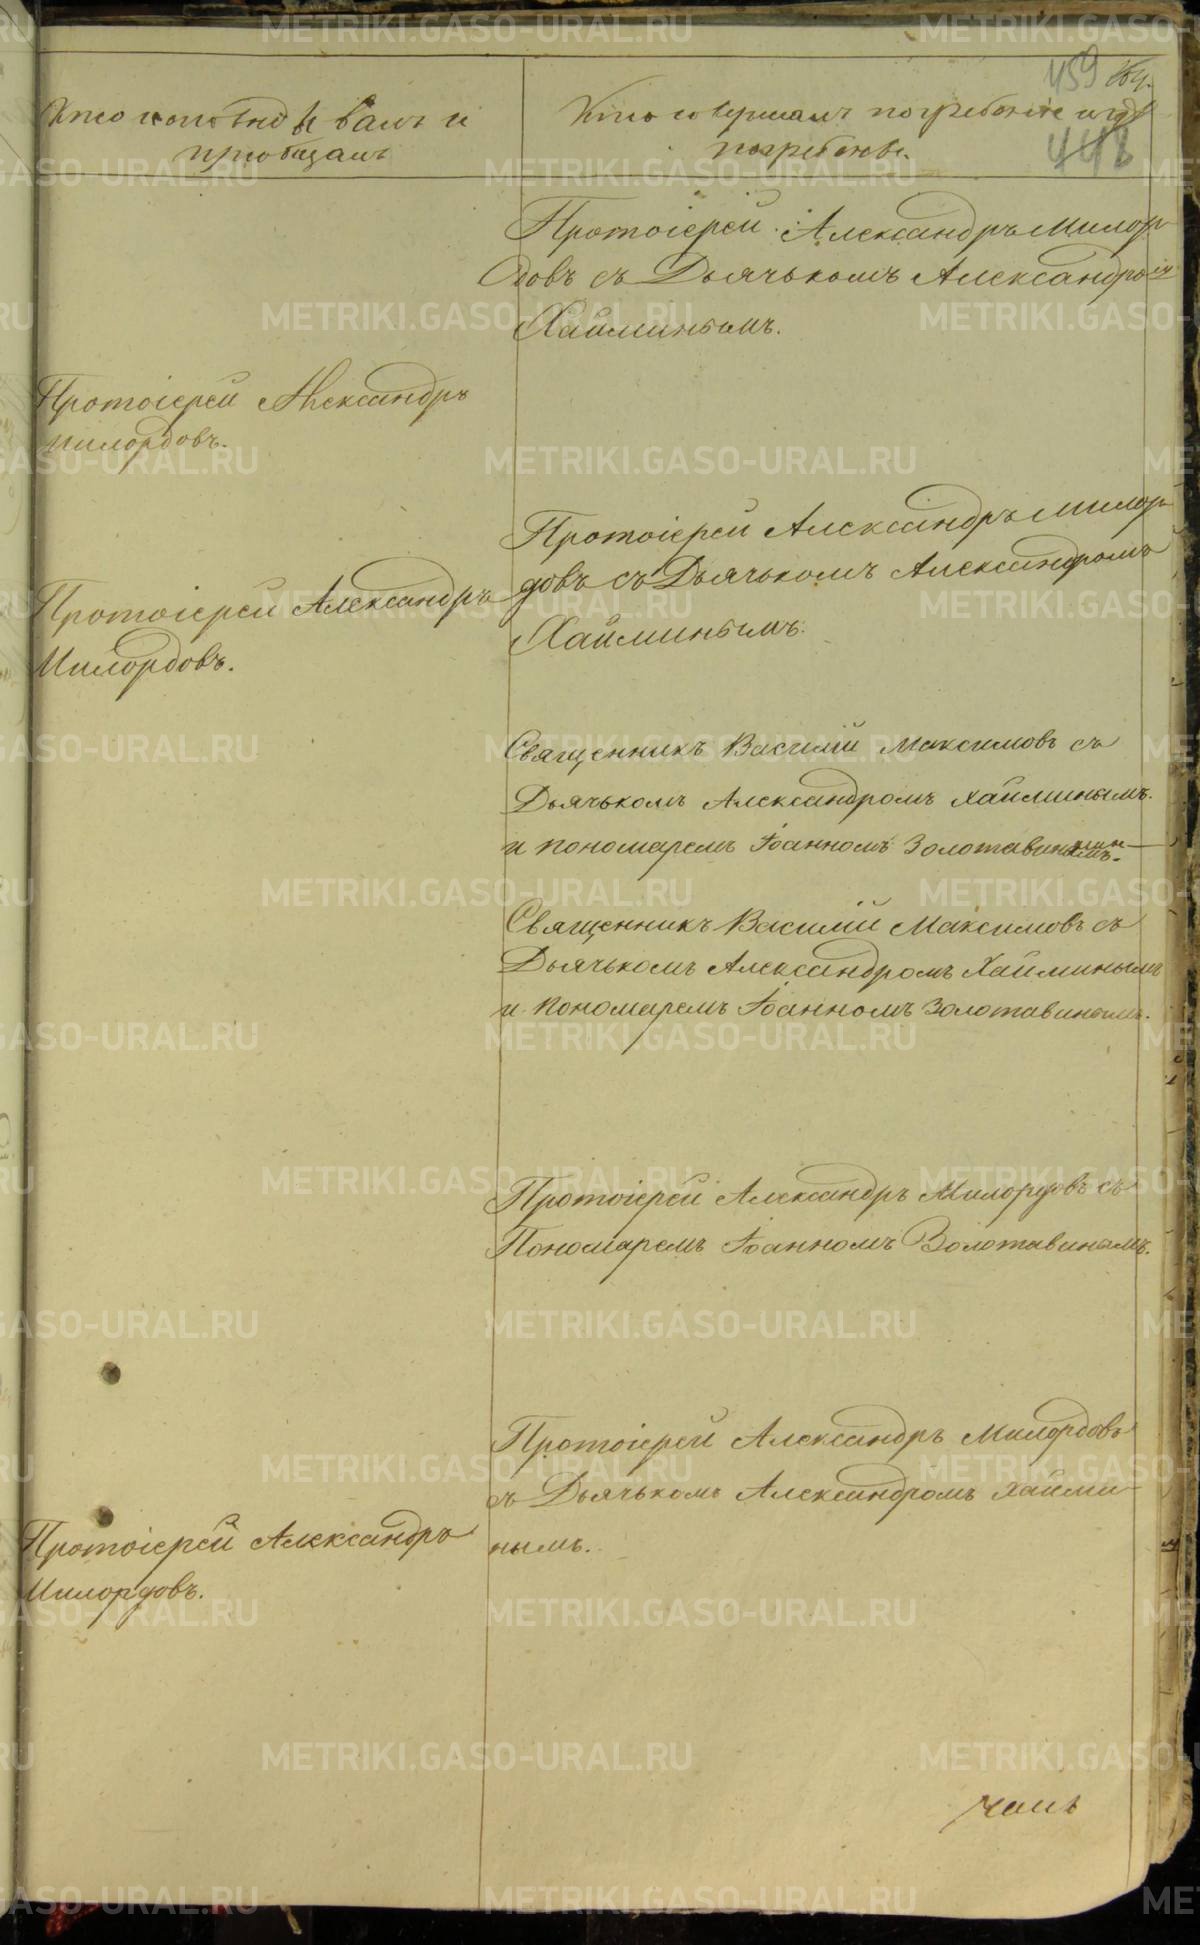 459
448
Кто исповѣдывалъ и
пріобщалъ
Кто совершалъ погребеніе и гдѣ
погребены.
Протоіерей Александръ Милор-
довъ съ Дьячькомъ Александромъ
Хайминымъ.
Протоіерей Александръ
Милордовъ.
Протоіерей Александръ Милор-
довъ съ Дьячькомъ Александромъ
Хайминымъ.
Протоіерей Александръ
Милордовъ.
Священникъ Василій Максимовъ съ
Дьячькомъ Александромъ Хайминымъ.
и пономаремъ Іоанномъ Золотавинымъ.
Священникъ Василій Максимовъ съ
Дьячькомъ Александромъ Хайминымъ
и пономаремъ Іоанномъ Золотавинымъ.
Протоіерей Александръ Милордовъ съ
Пономаремъ Іоанномъ Золотавинымъ.
Протоіерей Александръ Милордовъ
съ Дьячькомъ Александромъ Хайми-
нымъ.
Протоіерей Александръ
Милордовъ.
METRIKI.GASO-URAL.RU